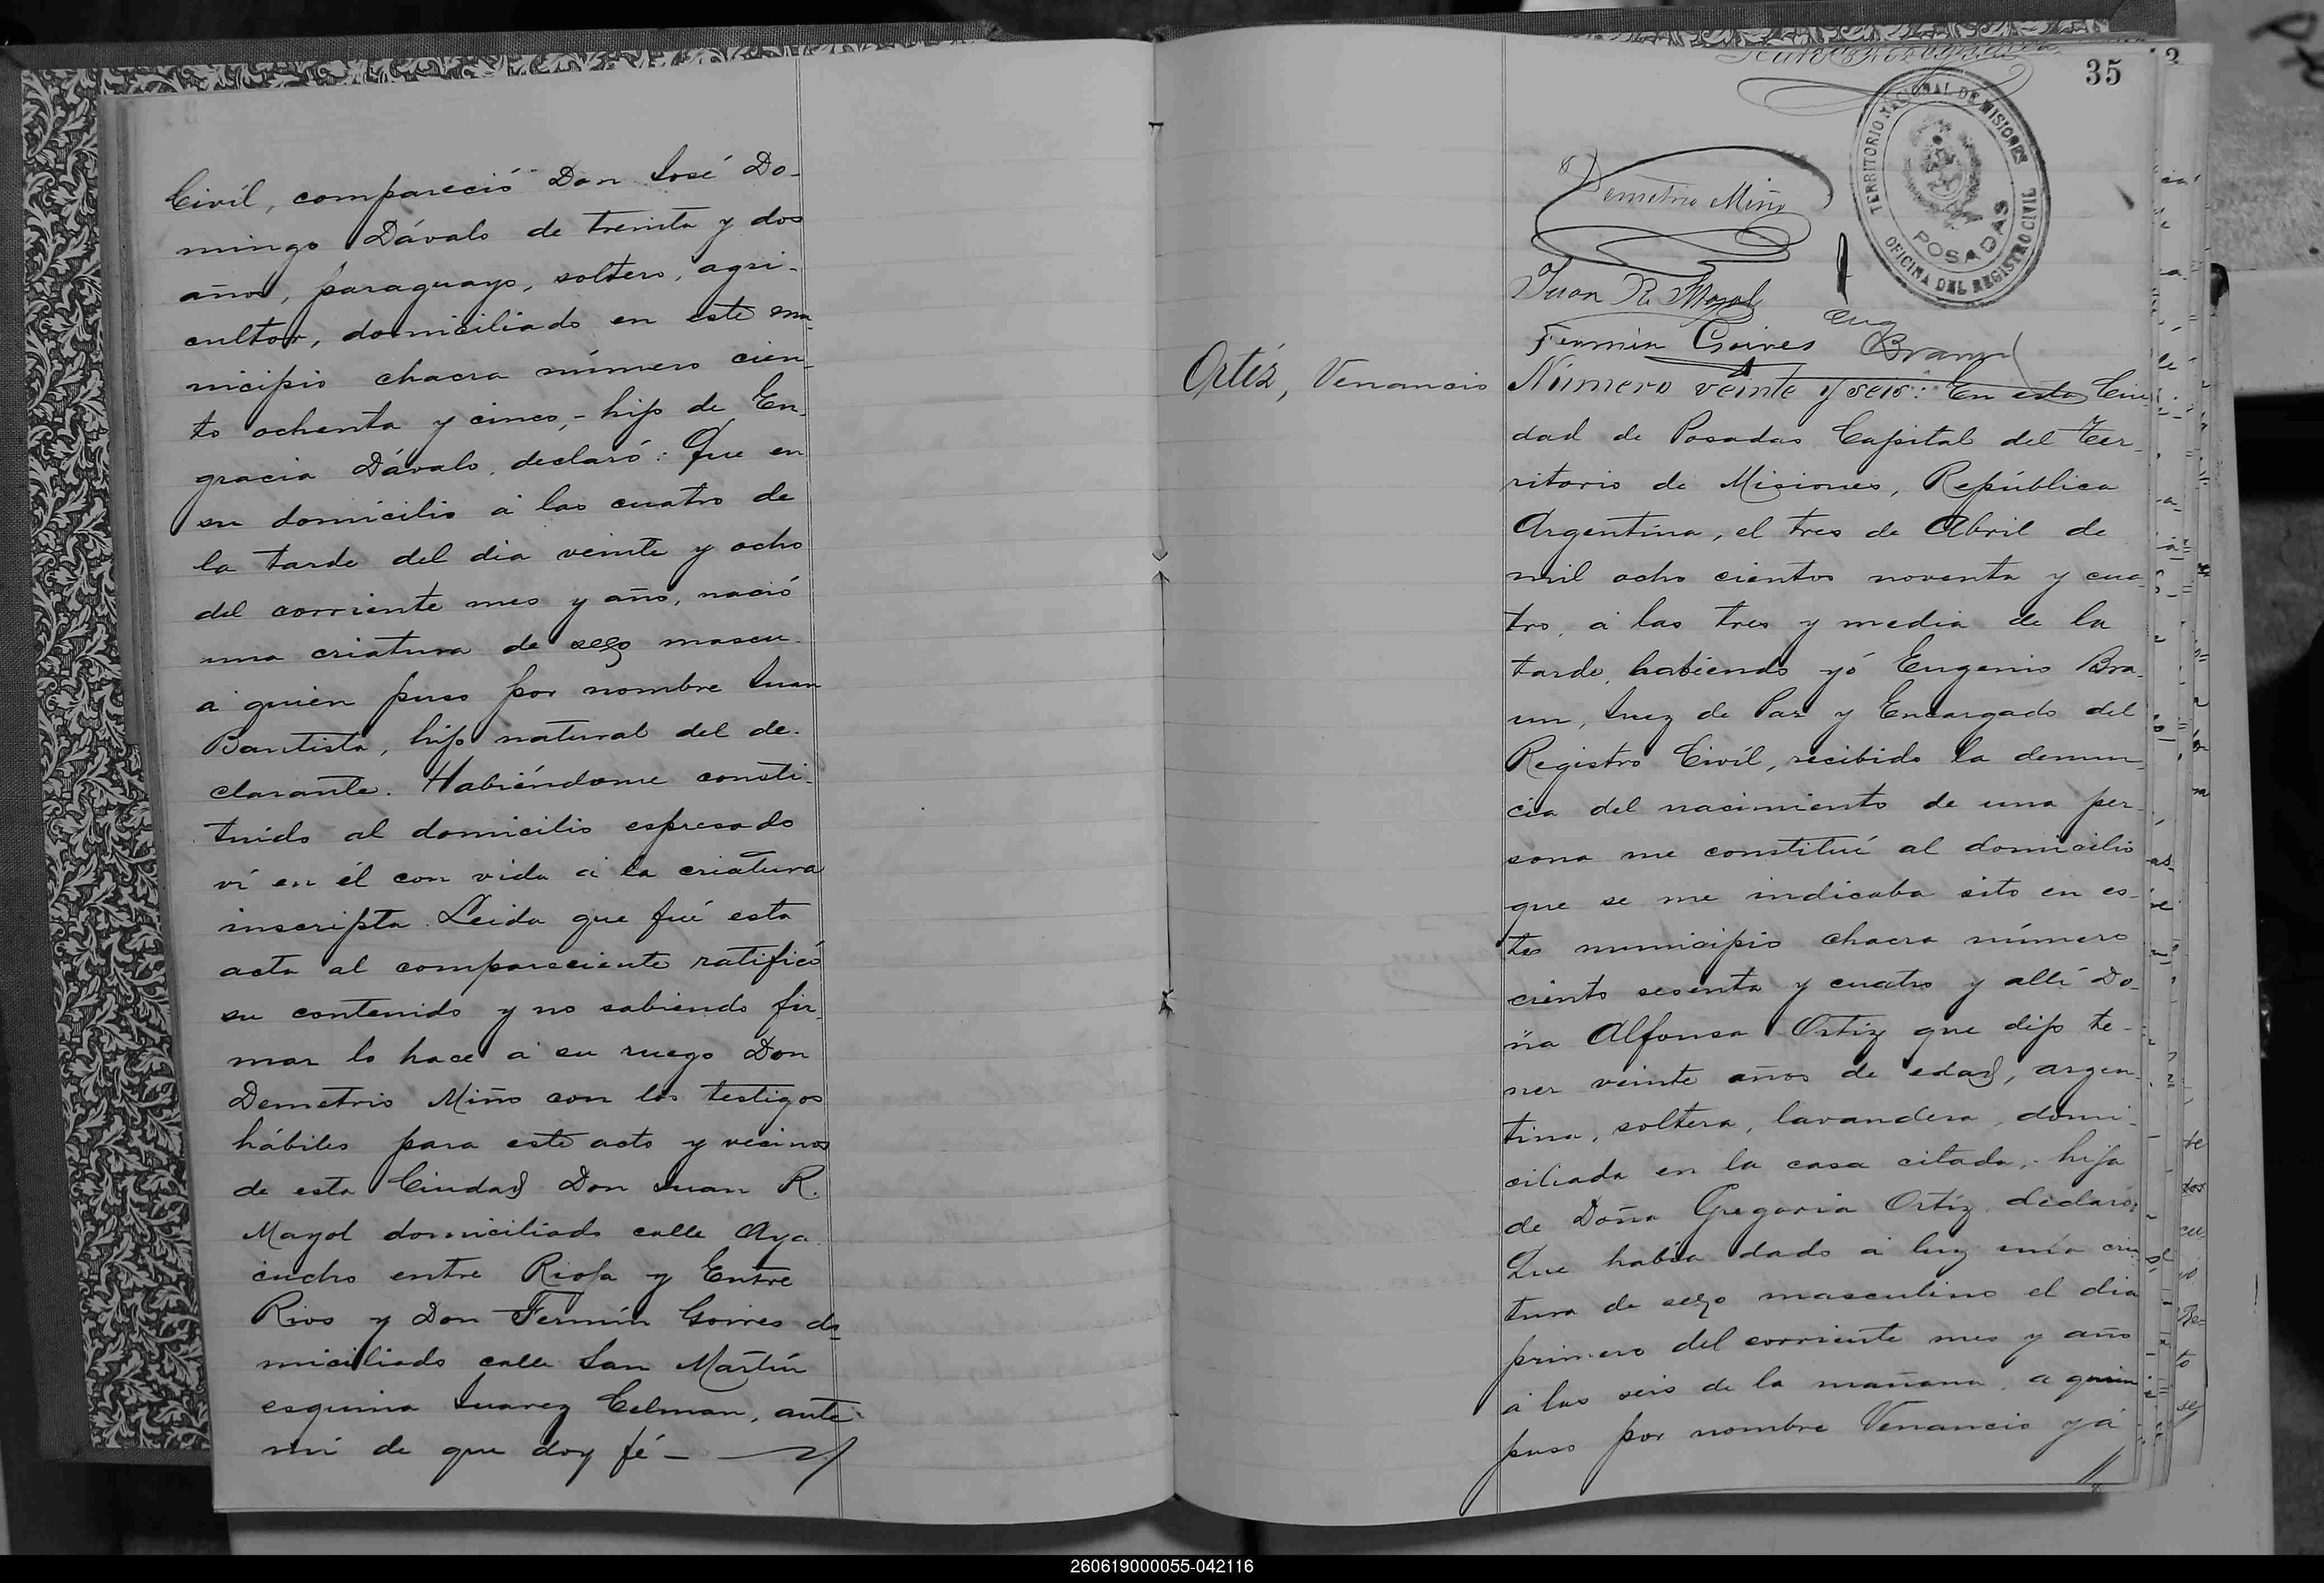 Civíl, compareció Don José Do-
mingo Dávalo de treinta y dos
años, paraguayo, soltero, agri-
cultor, domiciliado en este mu-
nicipio chacra número cien-
to ochenta y cinco,- hijo de En-
gracia Dávalo, declaró: Que en
su domicilio á las cuatro de
la tarde del dia veinte y ocho
del corriente mes y año, nació
una criatura de sexo mascu-
á quien puso por nombre Juan
Bautista, hijo natural del de-
clarante. Habiéndome consti-
tuido al domicilio espresado
ví en él con vida á la criatura
inscripta. Leida que fué esta
acta al compareciente ratificó
su contenido y no sabiendo fir-
mar lo hace á su ruego Don
Demetrio Miño con los testigos
hábiles para este acto y vecinos
de esta Ciudad Don Juan R.
Mayol domiciliado calle Aya-
cucho entre Rioja y Entre
Rios y Don Fermín Goires do-
miciliado calle San Martín
esquina Juarez Celman, ante
mí de que doy fé –
35
TERRITORIO NACIONAL DE MISIONES
POSADAS
OFICINA DEL REGISTRO CIVIL
Demetrio Miño
Juan R. Mayol
Eug
Fermín Goires Braun
Ortíz, Venancio
Número veinte y seis: En esta Ciu-
dad de Posadas Capital del Ter-
ritorio de Misiones, República
Argentina, el tres de Abril de
mil ocho cientos noventa y cua-
tro, á las tres y media de la
tarde, habiendo yó Eugenio Bra-
un, Juez de Paz y Encargado del
Registro Civíl, recibido la denun-
cia del nacimiento de una per-
sona me constituí al domicilio
que se me indicaba sito en es-
te municipio chacra número
ciento sesenta y cuatro y allí Do-
ña Alfonsa Ortiz que dijo te-
ner veinte años de edad, argen-
tina, soltera, lavandera, domi-
ciliada en la casa citada,- hija
de Doña Gregoria Ortíz, declaró:
Que habia dado á luz una cria-
tura de sexo masculino el dia
primero del corriente mes y año
á las seis de la mañana, a quien
puso por nombre Venancio y á
260619000055-042116